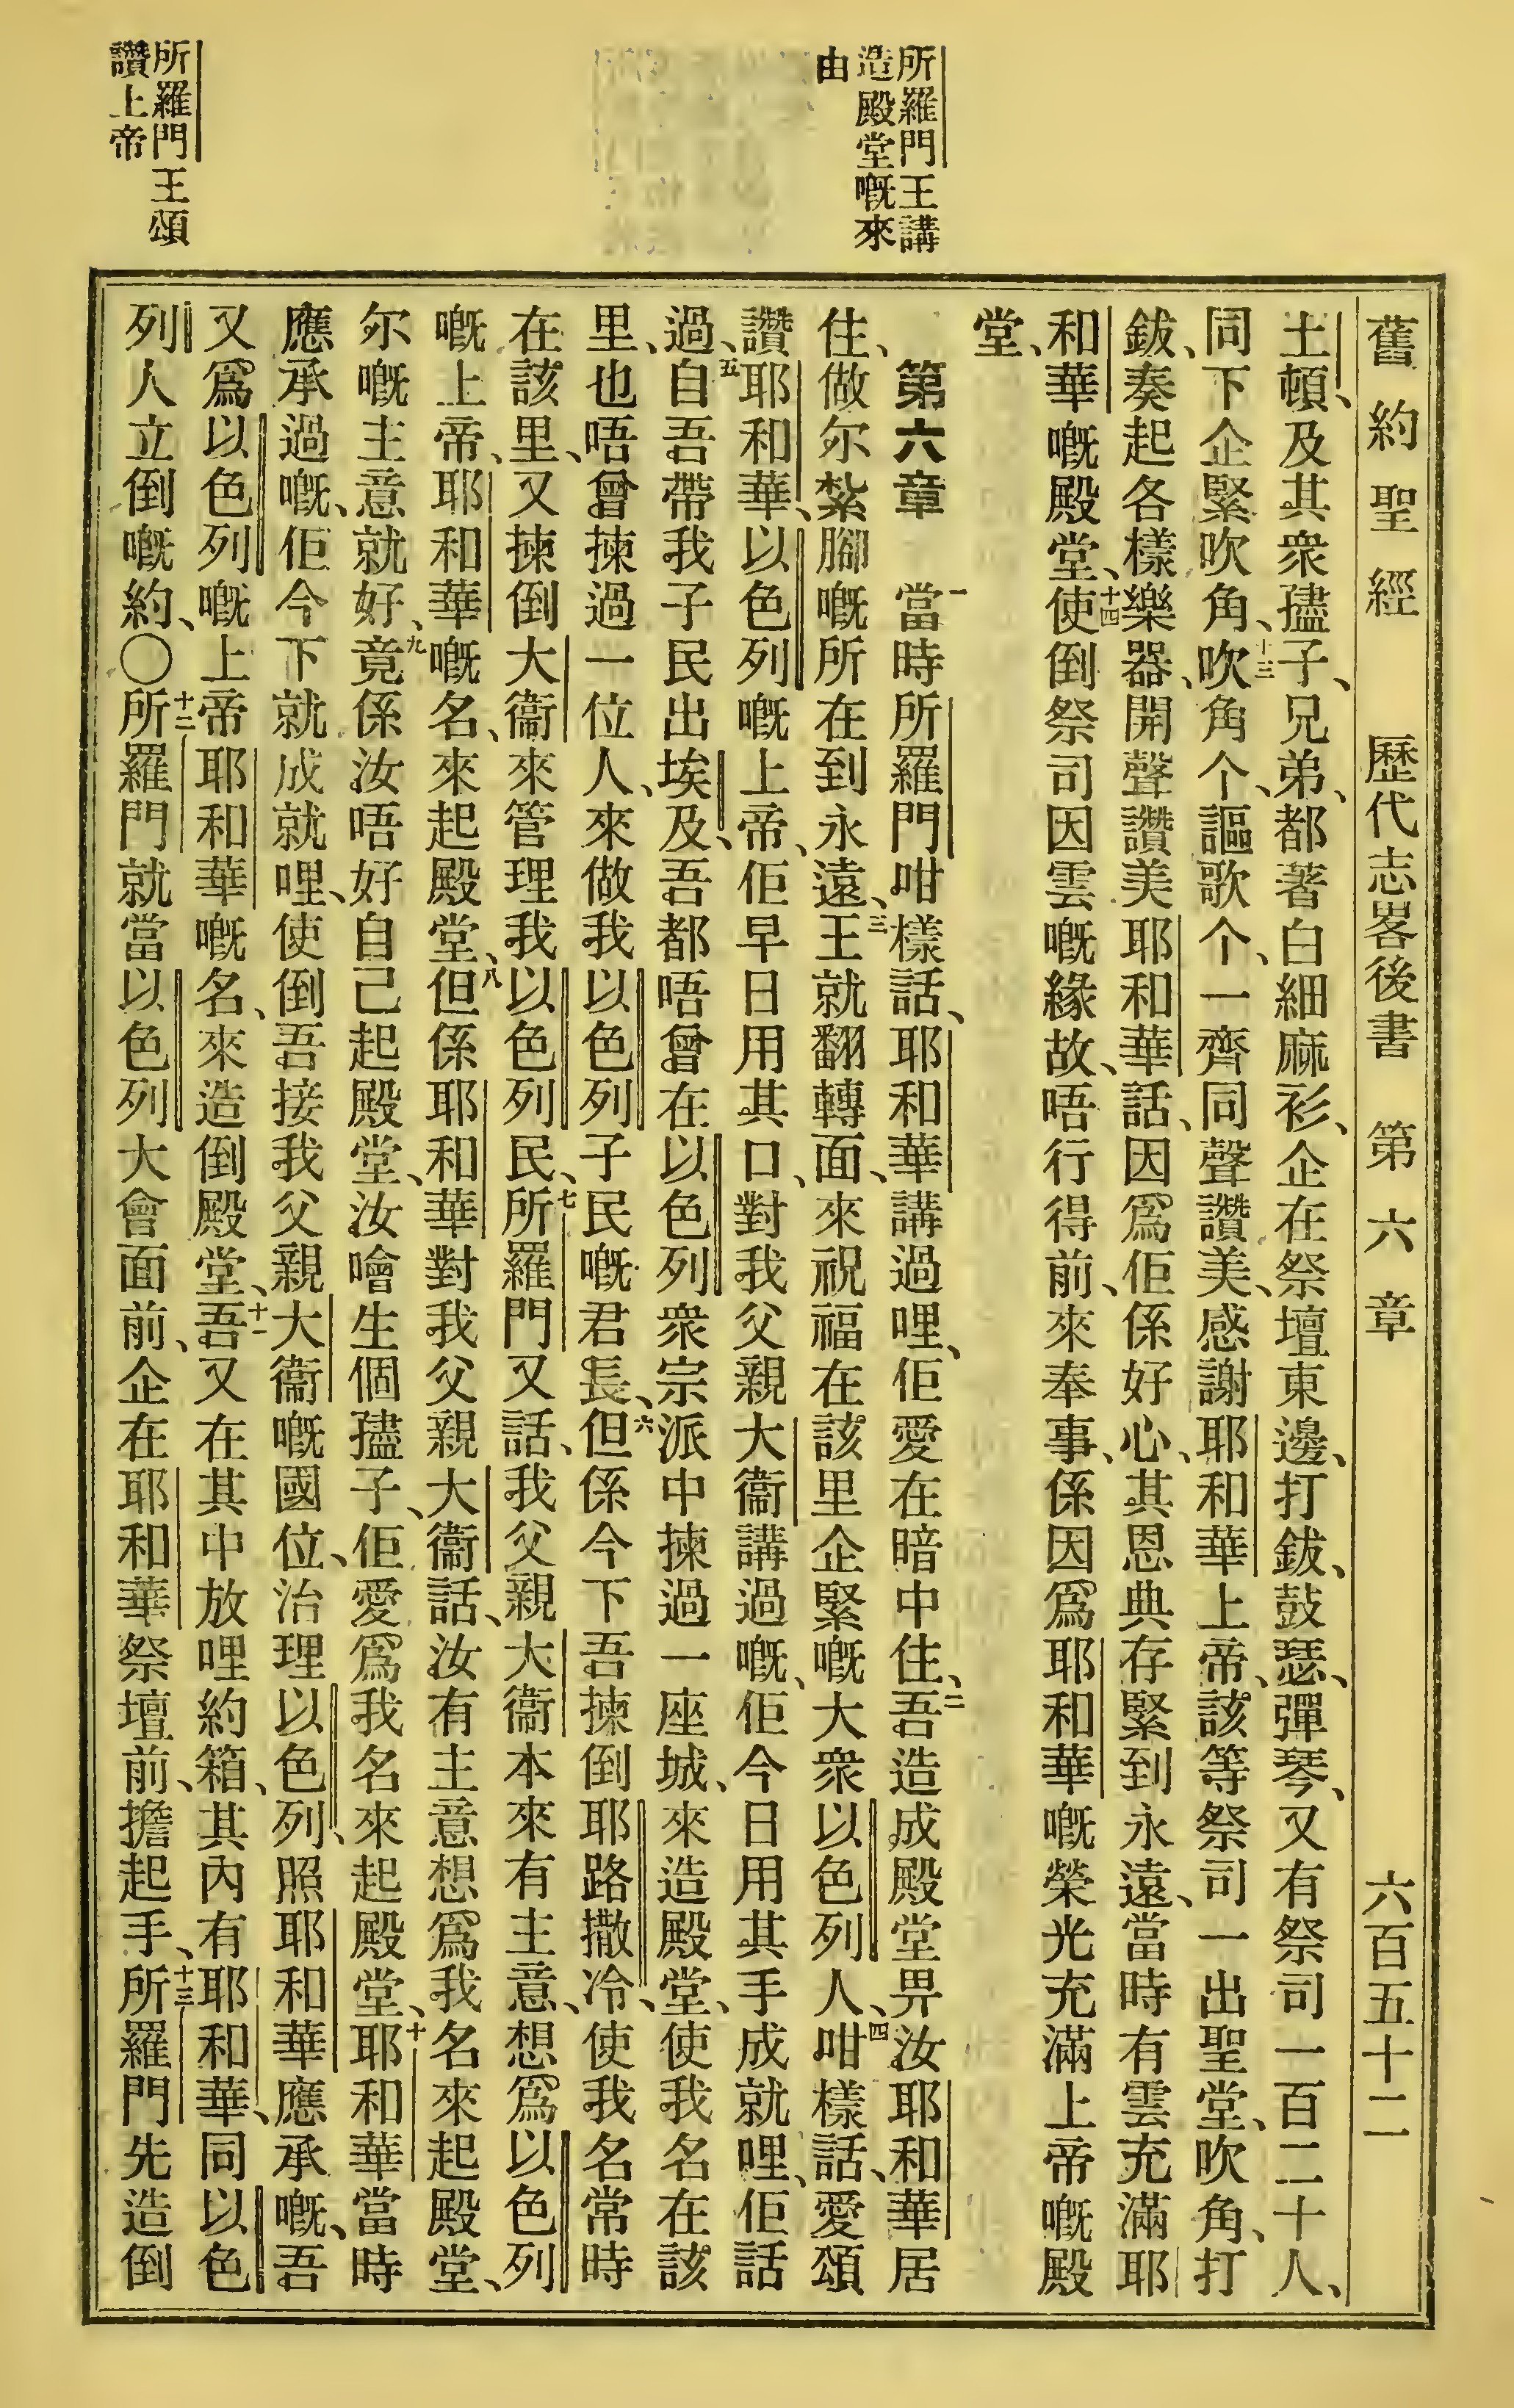 舊約聖經 歷代志畧後書 第六章 六百五十二
所羅門王講
造殿堂嘅來
由
所羅門王頌
讚上帝
土頓、及其衆𡥧子、兄弟、都著白細麻衫、企在祭壇東邊、打鈸、鼓瑟、彈琴、又有祭司一百二十人、
同下企緊吹角、十三吹角个、謳歌个、一齊同聲讚美、感謝耶和華上帝、該等祭司一出聖堂、吹角、打
鈸、奏起各樣樂器、開聲讚美耶和華話、因爲佢係好心、其恩典存緊到永遠、當時有雲充滿耶
和華嘅殿堂、十四使倒祭司因雲嘅緣故、唔行得前、來奉事、係因爲耶和華嘅榮光充滿上帝嘅殿
堂、
第六章 一當時所羅門咁樣話、耶和華講過哩、佢愛在暗中住、二吾造成殿堂畀汝耶和華居
住、做尔紮腳嘅所在到永遠、三王就翻轉面、來祝福在該里企緊嘅大衆以色列人、四咁樣話、愛頌
讚耶和華、以色列嘅上帝、佢早日用其口、對我父親大衞講過嘅、佢今日用其手成就哩、佢話
過、五自吾帶我子民出埃及、吾都唔曾在以色列衆宗派中揀過一座城、來造殿堂、使我名在該
里、也唔曾揀過一位人、來做我以色列子民嘅君長、六但係今下吾揀倒耶路撒冷、使我名常時
在該里、又揀倒大衞來管理我以色列民、七所羅門又話、我父親大衞本來有主意、想爲以色列
嘅上帝、耶和華嘅名、來起殿堂、八但係耶和華對我父親大衞話、汝有主意想爲我名來起殿堂、
尔嘅主意就好、九竟係汝唔好自己起殿堂、汝噲生個𡥧子、佢愛爲我名來起殿堂、十耶和華當時
應承過嘅、佢今下就成就哩、使倒吾接我父親大衞嘅國位、治理以色列、照耶和華應承嘅、吾
又爲以色列嘅上帝耶和華嘅名、來造倒殿堂、十一吾又在其中放哩約箱、其內有耶和華、同以色
列人立倒嘅約、〇十二所羅門就當以色列大會面前、企在耶和華祭壇前、擔起手、十三所羅門先造倒